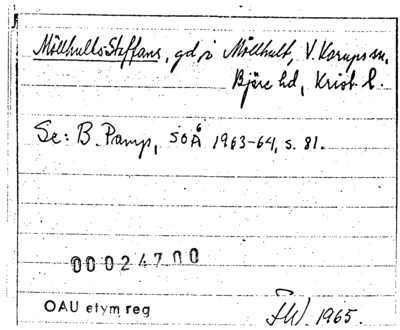 Möllhults-Steffans, gd i Möllhult, V. Karups sn,
Bjäre hd, Krist. l.
Se: B. Pamp, SOÅ 1963-64, s. 81.
00024700
OAU etym reg
1965.